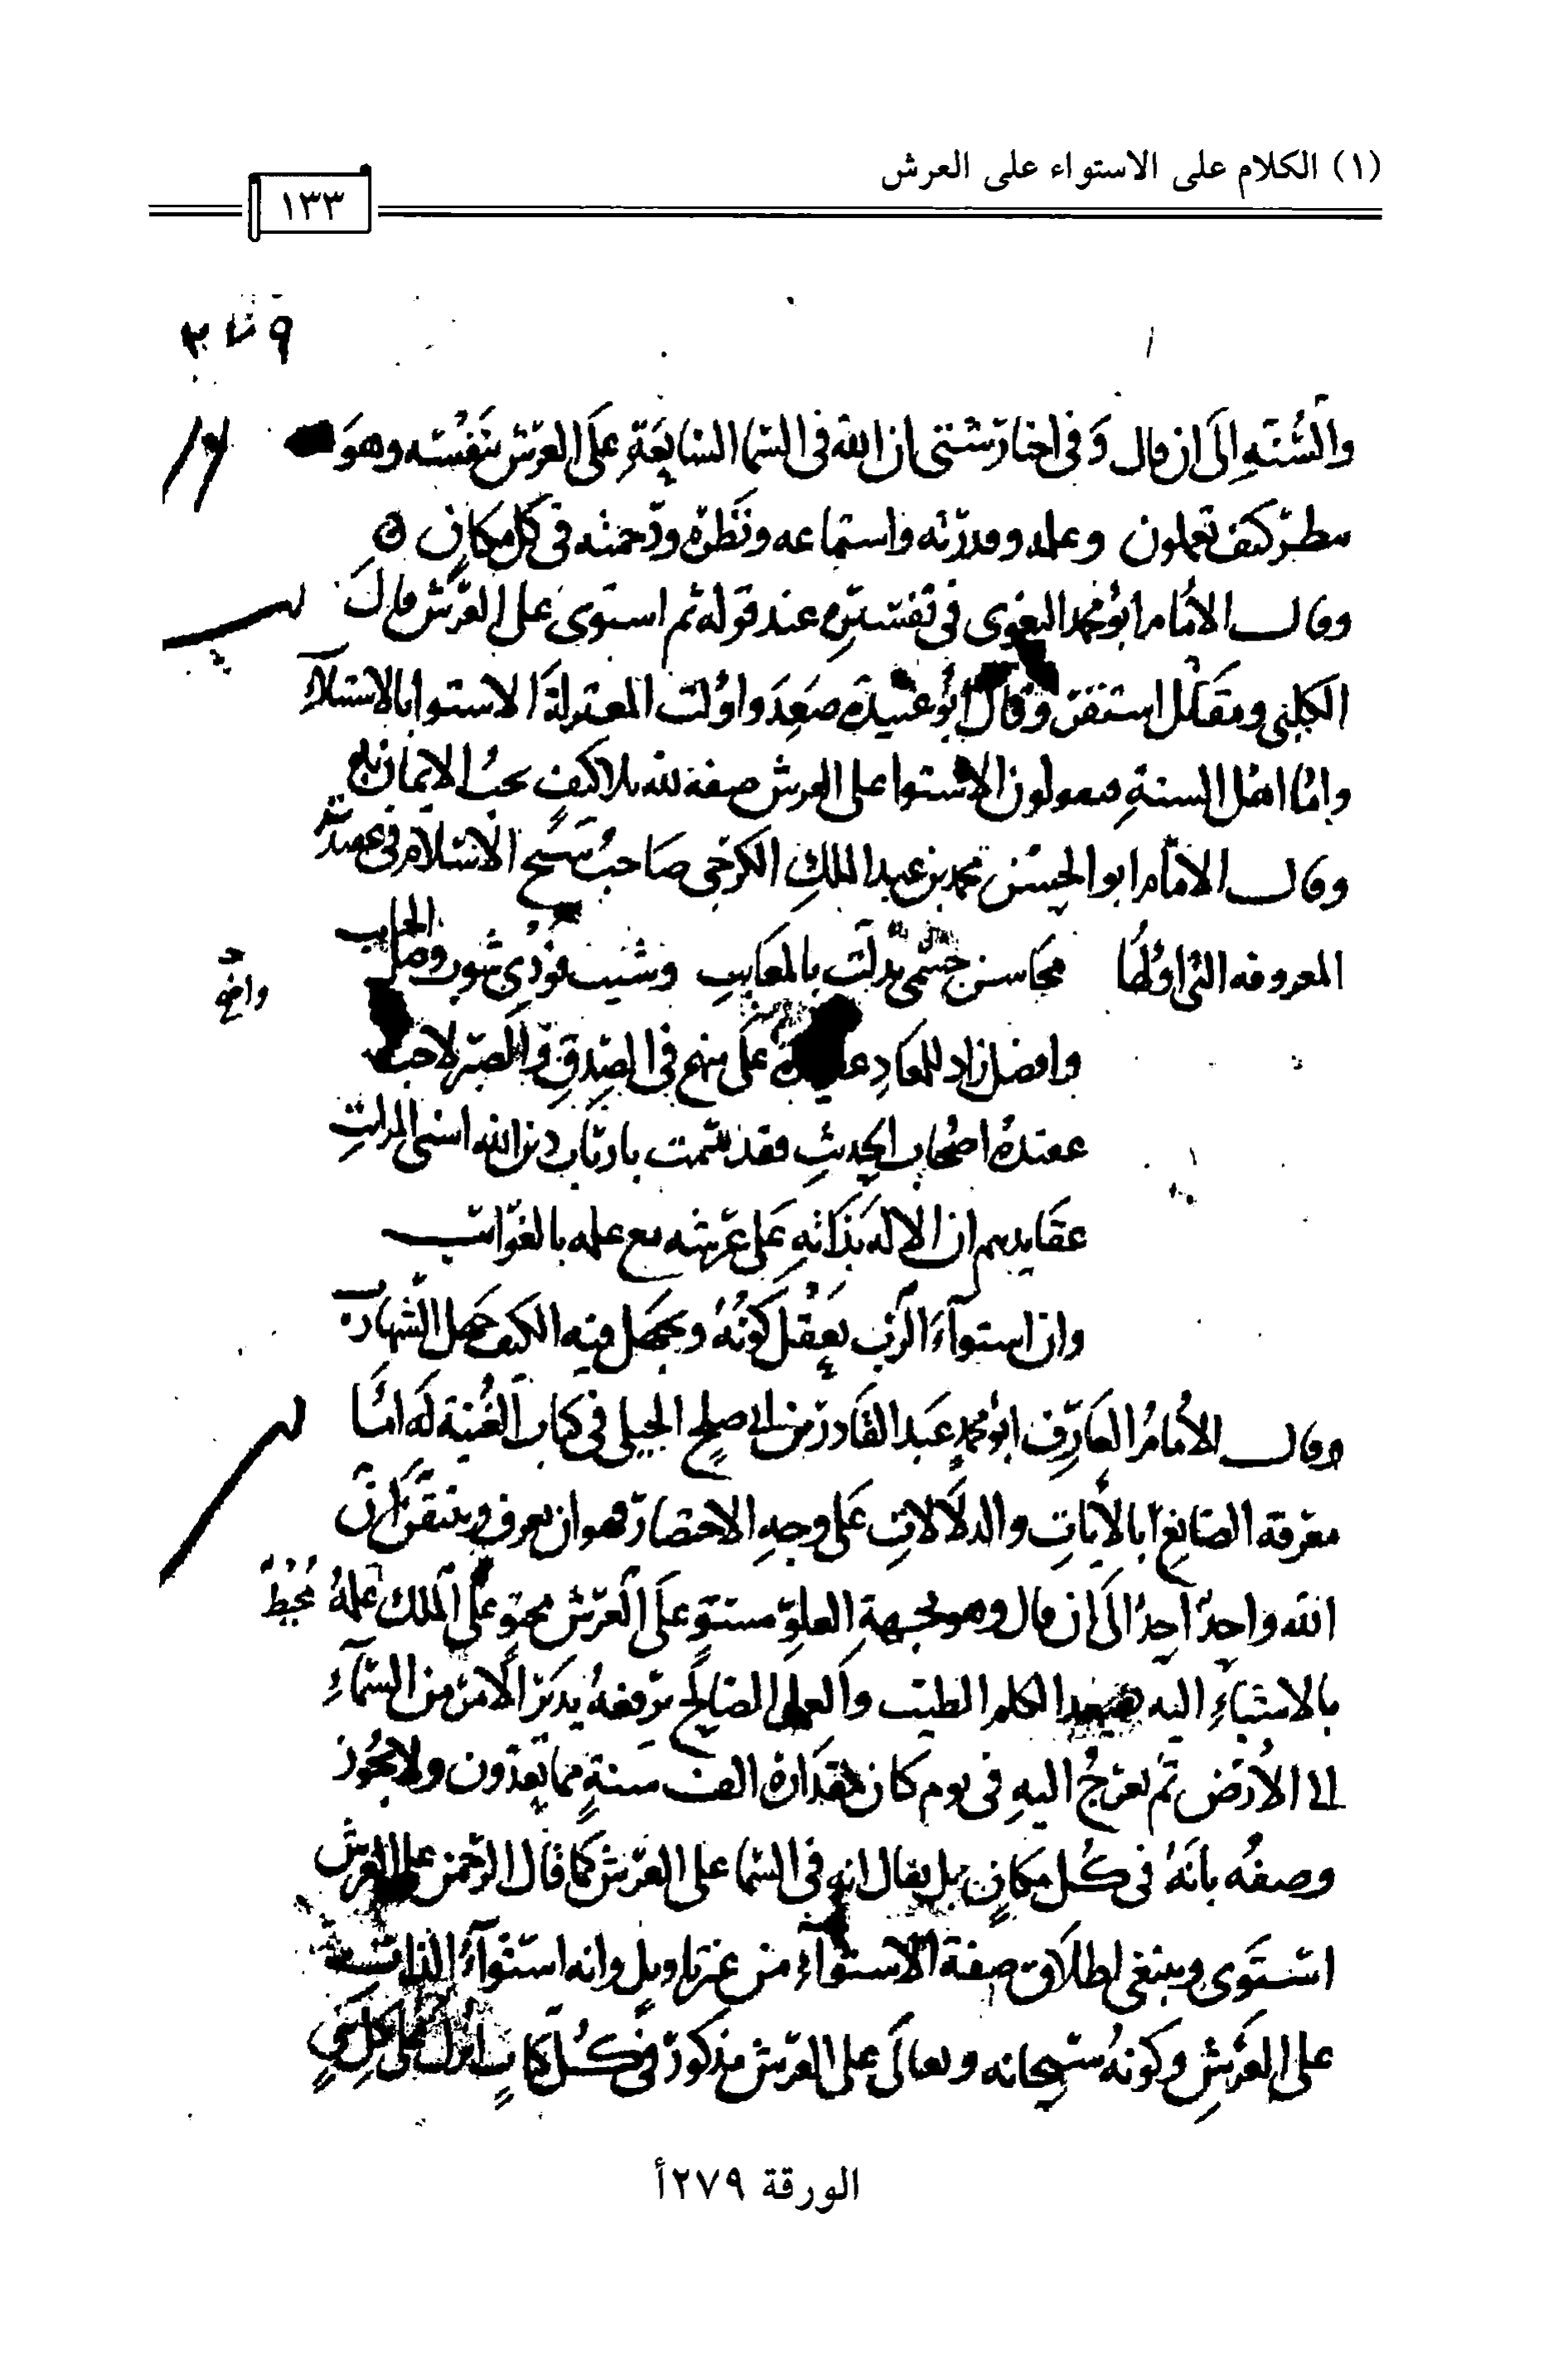 (١) الكلام على الاستواء على العرش
١٣٣
والسُّنَّةِ إلَى ان قال وَفى اخبار شتى ان الله فى السما السابعَةِ عَلَى العَرش بنَفْسه وهوَ
ينظر كيف تعملون وعلمه وقدرته واستماعه ونَظَره ورحمته فى كل مكانٍ
وقال الامام ابو محمد البغوى فى تفسيره عند قوله ثم استوى على العرش قال
الكلبى ومقاتل استقر وقال ابو عبيدة صَعِدَ واوّلت المعتزلة الاستوا بالاستيلآ
واما اهل السنةِ فيقولون الاستوا على العرش صفة لله بلا كيفٍ يجبُ الايمان به
وقال الامام ابو الحسن محمد بن عبد الملك الكرجى صَاحبُ شيخ الاسلام فى عقيدته
المعروفه التى اولها محاسن جسمى بدلت بالمعايبِ وشيب فودى شوب وصل الحبايب
وافضل زاد للمعادِ عقيدة عَلَى منهج فى الصِدقِ والصبر لاحب
عقيدةُ اصْحاب الحديثِ فقد سمت بارباب دين الله اسنى المراتبِ
عقايدهم ان الاله بذاته عَلَى عرشه مع علمه بالغوايب
وان استوآءَ الرب يعقل كونُهُ ويجهَل فيه الكيف جَهل الشهارب
وقال الامامُ العَارف ابو محمد عَبد القادر بن ابى صلح الجيلى فى كتاب الغُنية لَه امَّا
معرفة الصَانع بالآياتِ والدلَالاتِ عَلَى وجهِ الاختصار فهو ان يعرف ويتيقن انّ
الله واحدٌ احدٌ الَى ان قال وهو بجهةِ العلوّ مستوٍ عَلَى العرش محتوٍ عَلَى الملك علمهُ مُحيطٌ
بالاشيَاءِ اليه يصعد الكلم الطيب والعمل الصَالح يرفعهُ يدبر الامر من السَّمآءِ
الى الارض ثم يعرُجُ اليهِ فى يوم كان مقدَاره الف سَنةٍ مما تعدّون ولا يجُوز
وصفُه بانَهُ فى كُل مكانٍ بل يقال انه فى السَّما على العرش كما قال الرحمن على العرش
استَوَى وينبغى اطلاق صفة الاستوآءِ من غير تاويلٍ وانه استوآءُ الذات
على العَرشِ وكونهُ سُبحانه وتعالَى على العرش مذكورٌ فى كُل كتابٍ انزل على كل نبىٍ
الورقة ٢٧٩أ